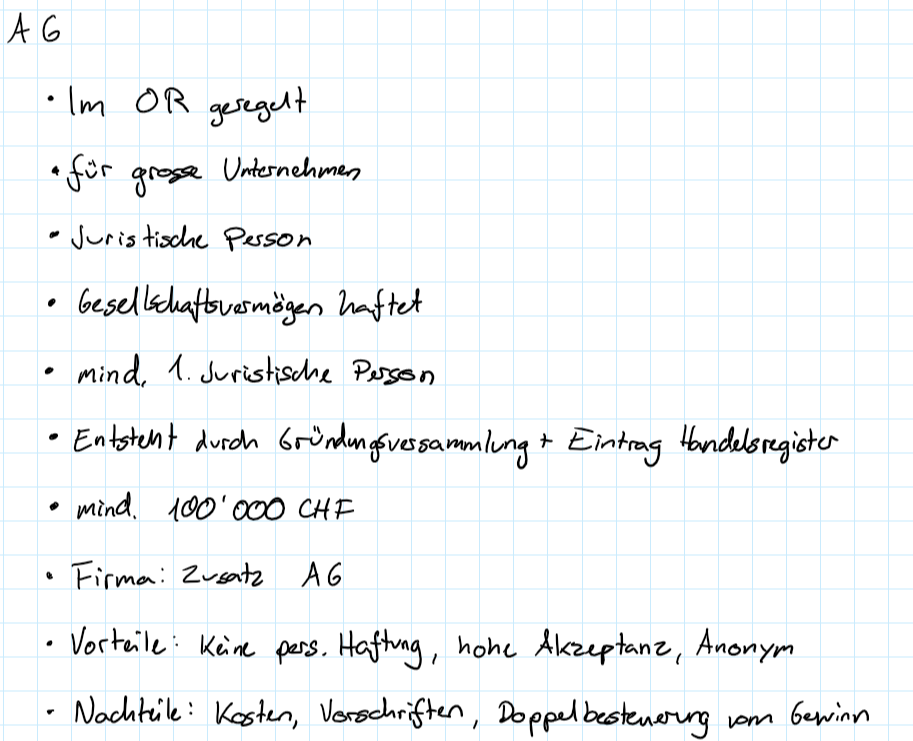 AG
• Im OR geregelt
• für grosse Unternehmen
• Juristische Person
• Gesellschaftsvermögen haftet
• mind. 1. Juristische Person
• Entsteht durch Gründungsversammlung + Eintrag Handelsregister
• mind. 100'000 CHF
• Firma: Zusatz AG
• Vorteile: Keine pers. Haftung, hohe Akzeptanz, Anonym
• Nachteile: Kosten, Vorschriften, Doppelbesteuerung vom Gewinn